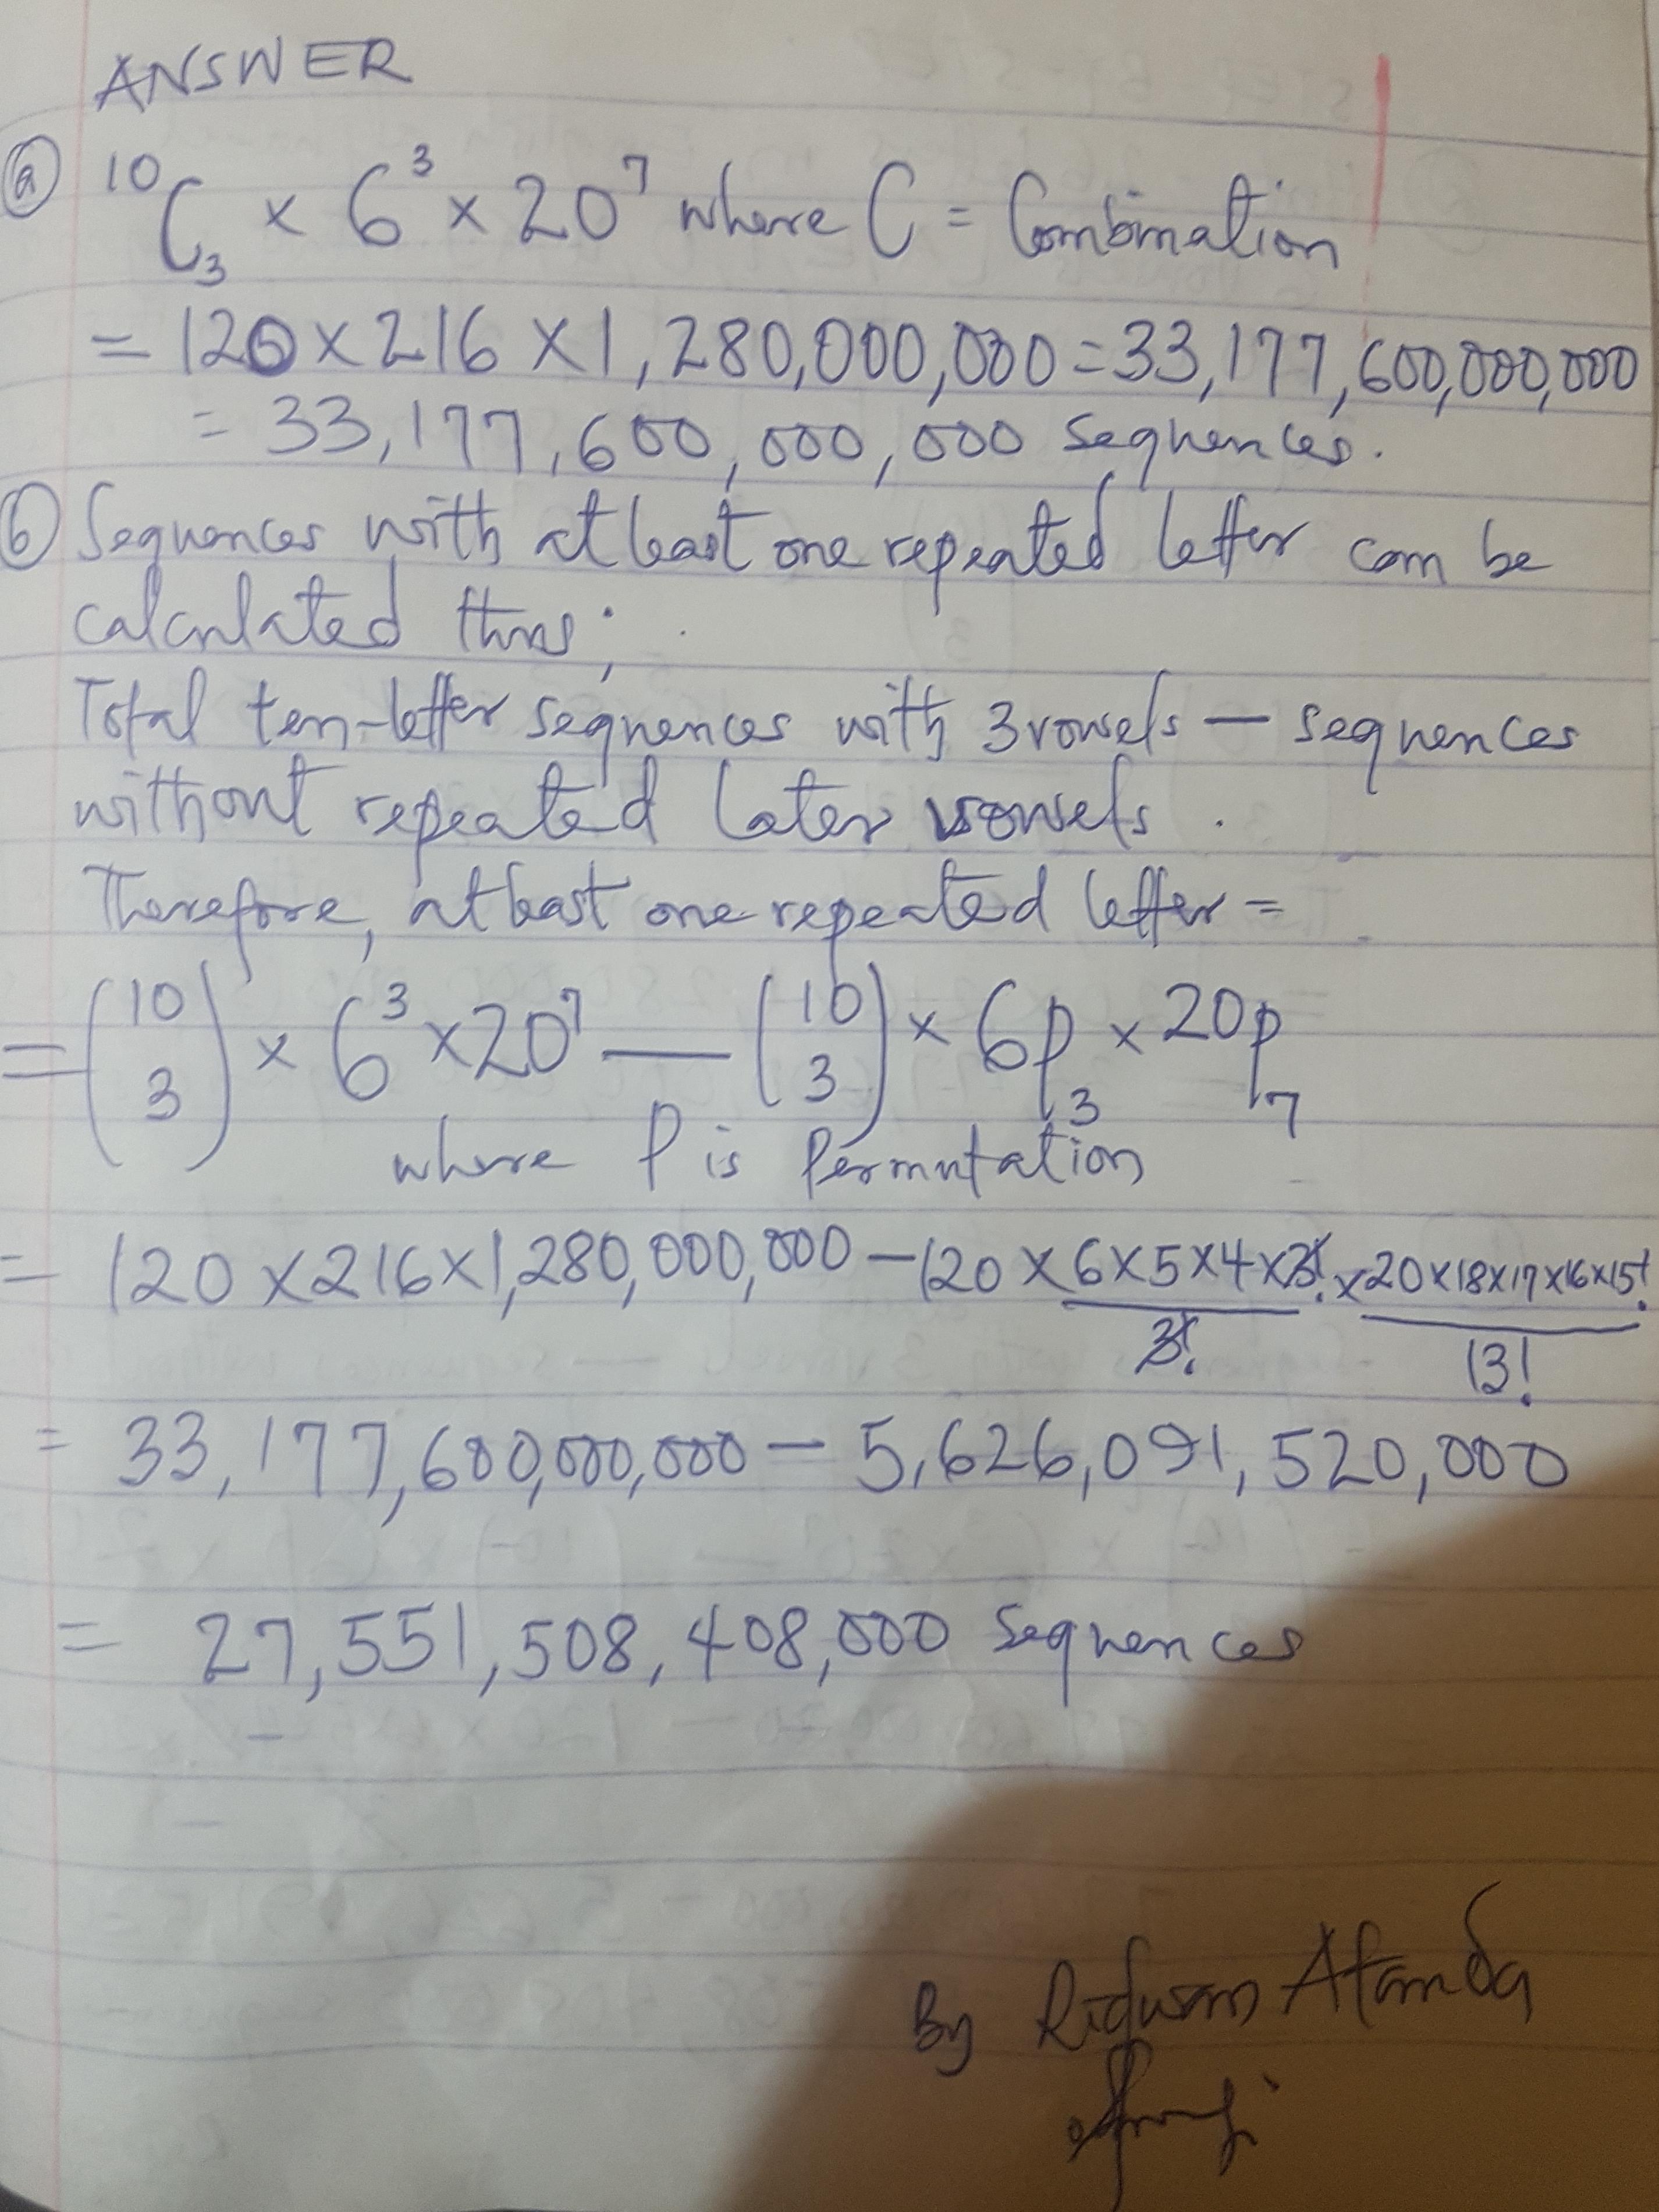 ANSWER
(a) ¹⁰C₃ × 6³ × 20⁷ where C = Combination
= 120 × 216 × 1,280,000,000 = 33,177,600,000,000
= 33,177,600,000,000 sequences.
(b) Sequences with at least one repeated letter can be
calculated thus;
Total ten-letter sequences with 3 vowels — sequences
without repeated later vowels.
Therefore, at least one repeated letter =
= (10 3) × 6³ × 20⁷ — (10 3) × 6P₃ × 20P₇
where P is Permutation
= 120 × 216 × 1,280,000,000 – 120 × 6×5×4×3!/3! × 20×18×17×16×15!/13!
= 33,177,600,000,000 – 5,626,091,520,000
= 27,551,508,408,000 sequences
By Ridwan Atanda